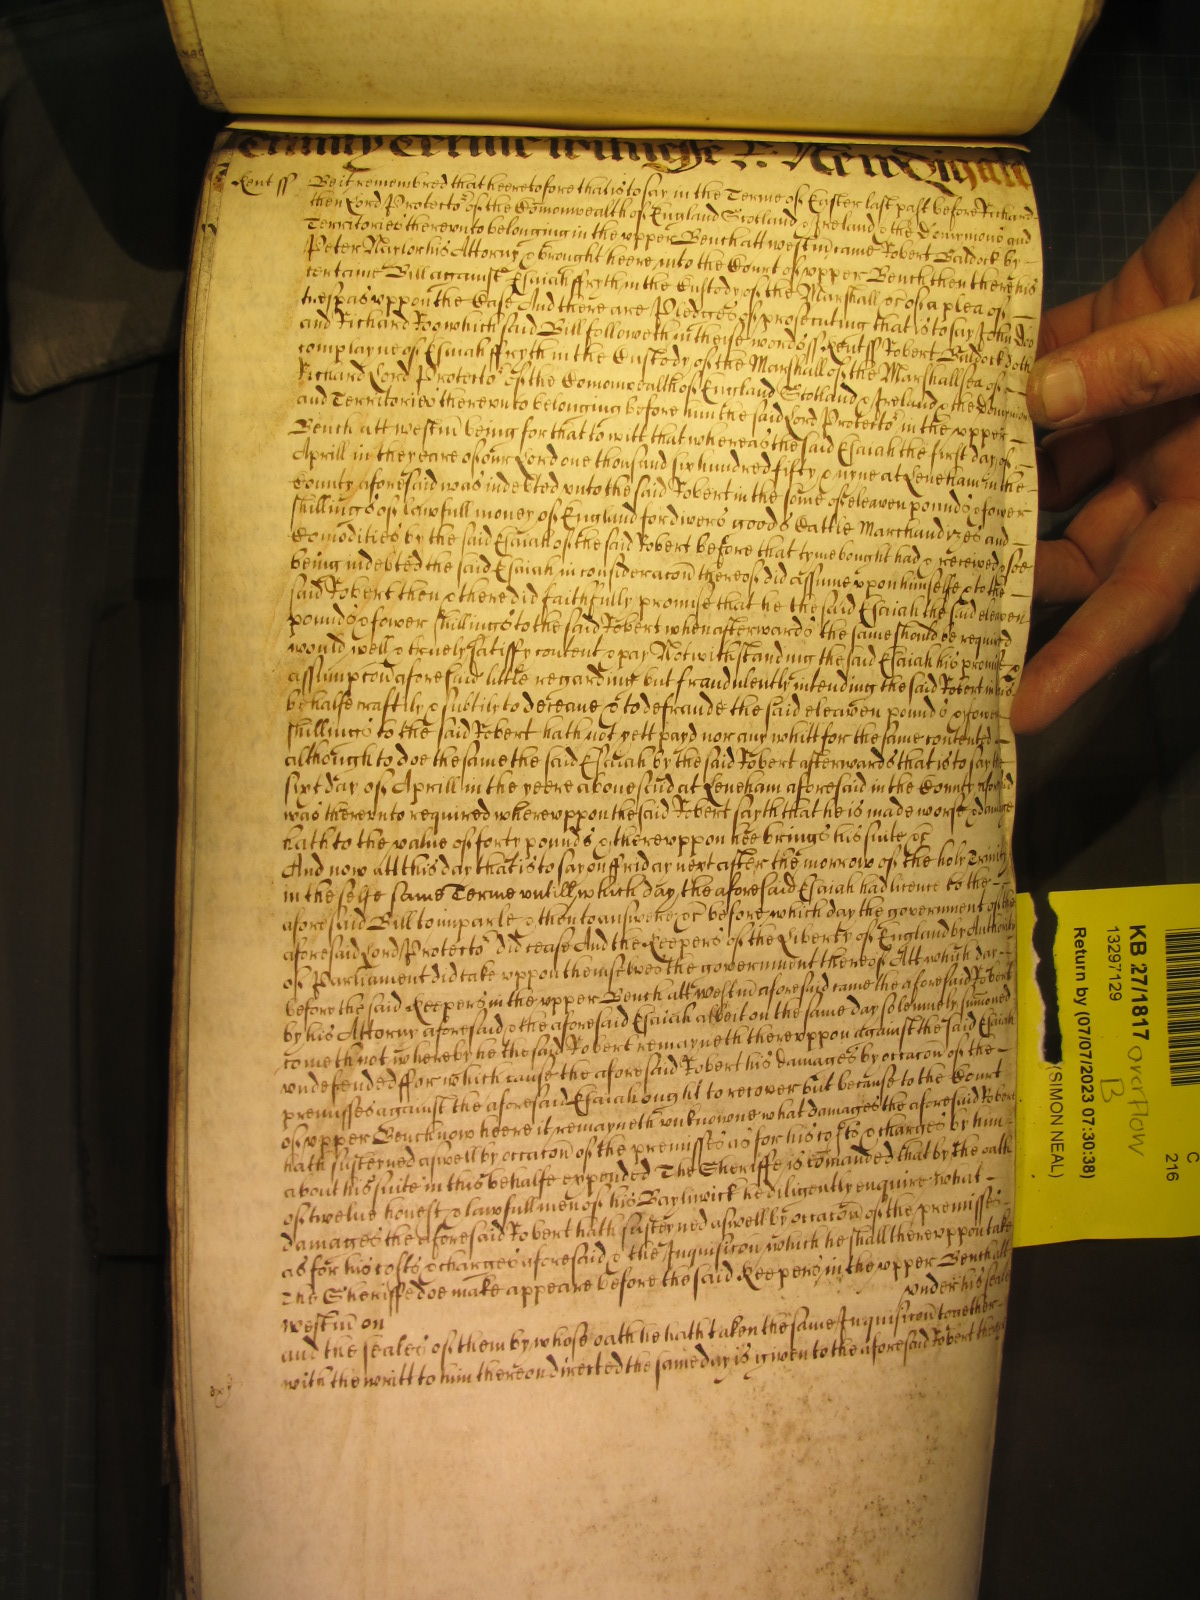 Trinity Terme
Kent ss Be it remembred that heeretofore that is to say in the Terme of Easter last past before Richard
then Lord Protector of the Comonwealth of England Scotland & Ireland & the Dominions and
Territories thereunto belonging in the upper Bench att westm came Robert Baldock by
Peter Naylor his Attorny & brought heere into the Court of upper Bench then there his
certaine Bill against Esaiah ffryth in the Custody of the Marshall &c of a plea of
trespas uppon the Case And there are Pledges of prosecuting that is to say John Doo
and Richard Roo which said Bill followeth in theise words ss Kent ss Robert Baldock doth
complayne of Esaiah ffryth in the Custody of the Marshall of the Marshallsea of
Richard Lord Protector of the Comonwealth of England Scotland & Ireland & the Dominions
and Territories thereunto belonging before him the said Lord Protector in the upper
Bench att westm being for that to witt that whereas the said Esaiah the first day of
Aprill in the yeare of our Lord one thousand six hundred fifty & nyne at Leneham in the
County aforesaid was indebted unto the said Robert in the some of eleaven pounds & fower
shillings of lawfull money of England for divers goods Cattle Marchandyzes and
Comodities by the said Esaiah of the said Robert before that tyme bought had & received & soe
being indebted the said Esaiah in consideracon thereof did assume uppon himselfe & to the
said Robert then & there did faithfully promise that he the said Esaiah the said eleaven
pounds & fower shillings to the said Robert when afterwards the same should be required
would well & truely satisfy content & pay Notwithstanding the said Esaiah his promise &
assumpcon aforesaid little regarding but fraudulently intending the said Robert in this
behalfe craftily & subtily to deceave & to defraude the said eleaven pounds & fower
shillings to the said Robert hath not yett payd nor any whitt for the same contented
although to doe the same the said Esaiah by the said Robert afterwards that is to say the
sixt day of Aprill in the yeere abovesaid at Leneham aforesaid in the County aforesaid
was thereunto required whereuppon the said Robert sayth that he is made worse & damage
hath to the value of forty pounds & thereuppon hee brings his suite &c
And now att this day that is to say on ffriday next after the morrow of the holy Trinity
in the selfe same Terme untill which day the aforesaid Esaiah had licence to the
aforesaid Bill to imparle & then to answere &c before which day the government of the
aforesaid Lord Protector did cease And the Keepers of the Liberty of England by Authority
of Parliament did take uppon themselves the government thereof Att which day
before the said Keepers in the upper Bench att westm aforesaid came the aforesaid Robert
by his Attorny aforesaid & the aforesaid Esaiah albeit on the same day solemnely sumoned
cometh not whereby he the said Robert remayneth thereuppon against the said Esaiah
undefended ffor which cause the aforesaid Robert his damages by occacon of the
premisses against the aforesaid Esaiah ought to recover but because to the Court
of upper Bench now heere it remayneth unknowne what damages the aforesaid Robert
hath susteyned aswell by occacon of the premisses as for his costs & charges by him
about his suite in this behalfe expended The Sheriffe is comanded that by the oath
of twelve honest & lawfull men of his Bayliwick he diligently enquire what
damages the aforesaid Robert hath susteyned aswell by occacon of the premisses
as for his costs & charges aforesaid & the Inquisicon which he shall thereuppon take
The Sheriffe doe make appeare before the said Keepers in the upper Bench att
westm on under his seale
and the seales of them by whose oath he hath taken the same Inquisicon together
with the writt to him thereon directed the same day is given to the aforesaid Robert there
KB 27/1817 overflow
13297129 B
Return by (07/07/2023 07:30:38)
(SIMON NEAL)
C
216